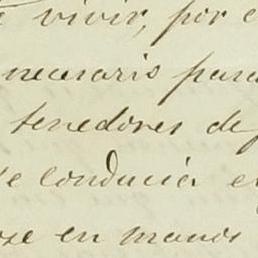 vivir, por e
necesario para
tenedores de
se conducia e
ose en manos